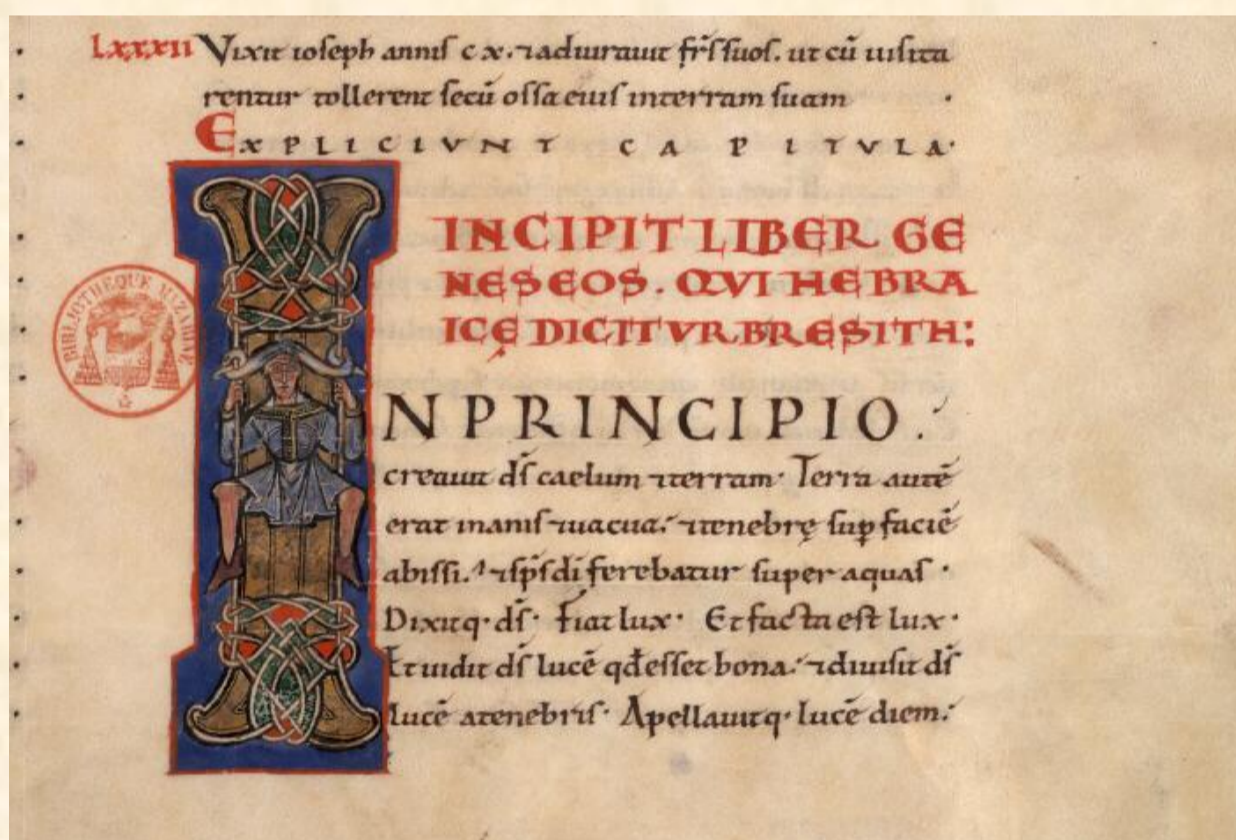 Lxxxii Vixit ioseph annis c x. ⁊ adiurauit fr̄s suos. ut cū uisita
rentur tollerent secū ossa eius in terram suam
EXPLICIVNT CAPITVLA.
INCIPIT LIBER GE
NESEOS. QVI HEBRA
ICĘ DICITVR BRESITH:
BIBLIOTHEQUE MAZARINE
IN PRINCIPIO.
creauit ds̄ caelum ⁊ terram. Terra autē
erat inanis ⁊ uacua. ⁊ tenebrę sup̱ faciē
abissi. ⁊ sp̄s di ferebatur super aquas.
Dixitq. ds̄. Fiat lux. Et facta est lux.
Et uidit ds̄ lucē qđ esset bona. ⁊ diuisit ds̄
lucē a tenebris. Apellauitq. lucē diem.